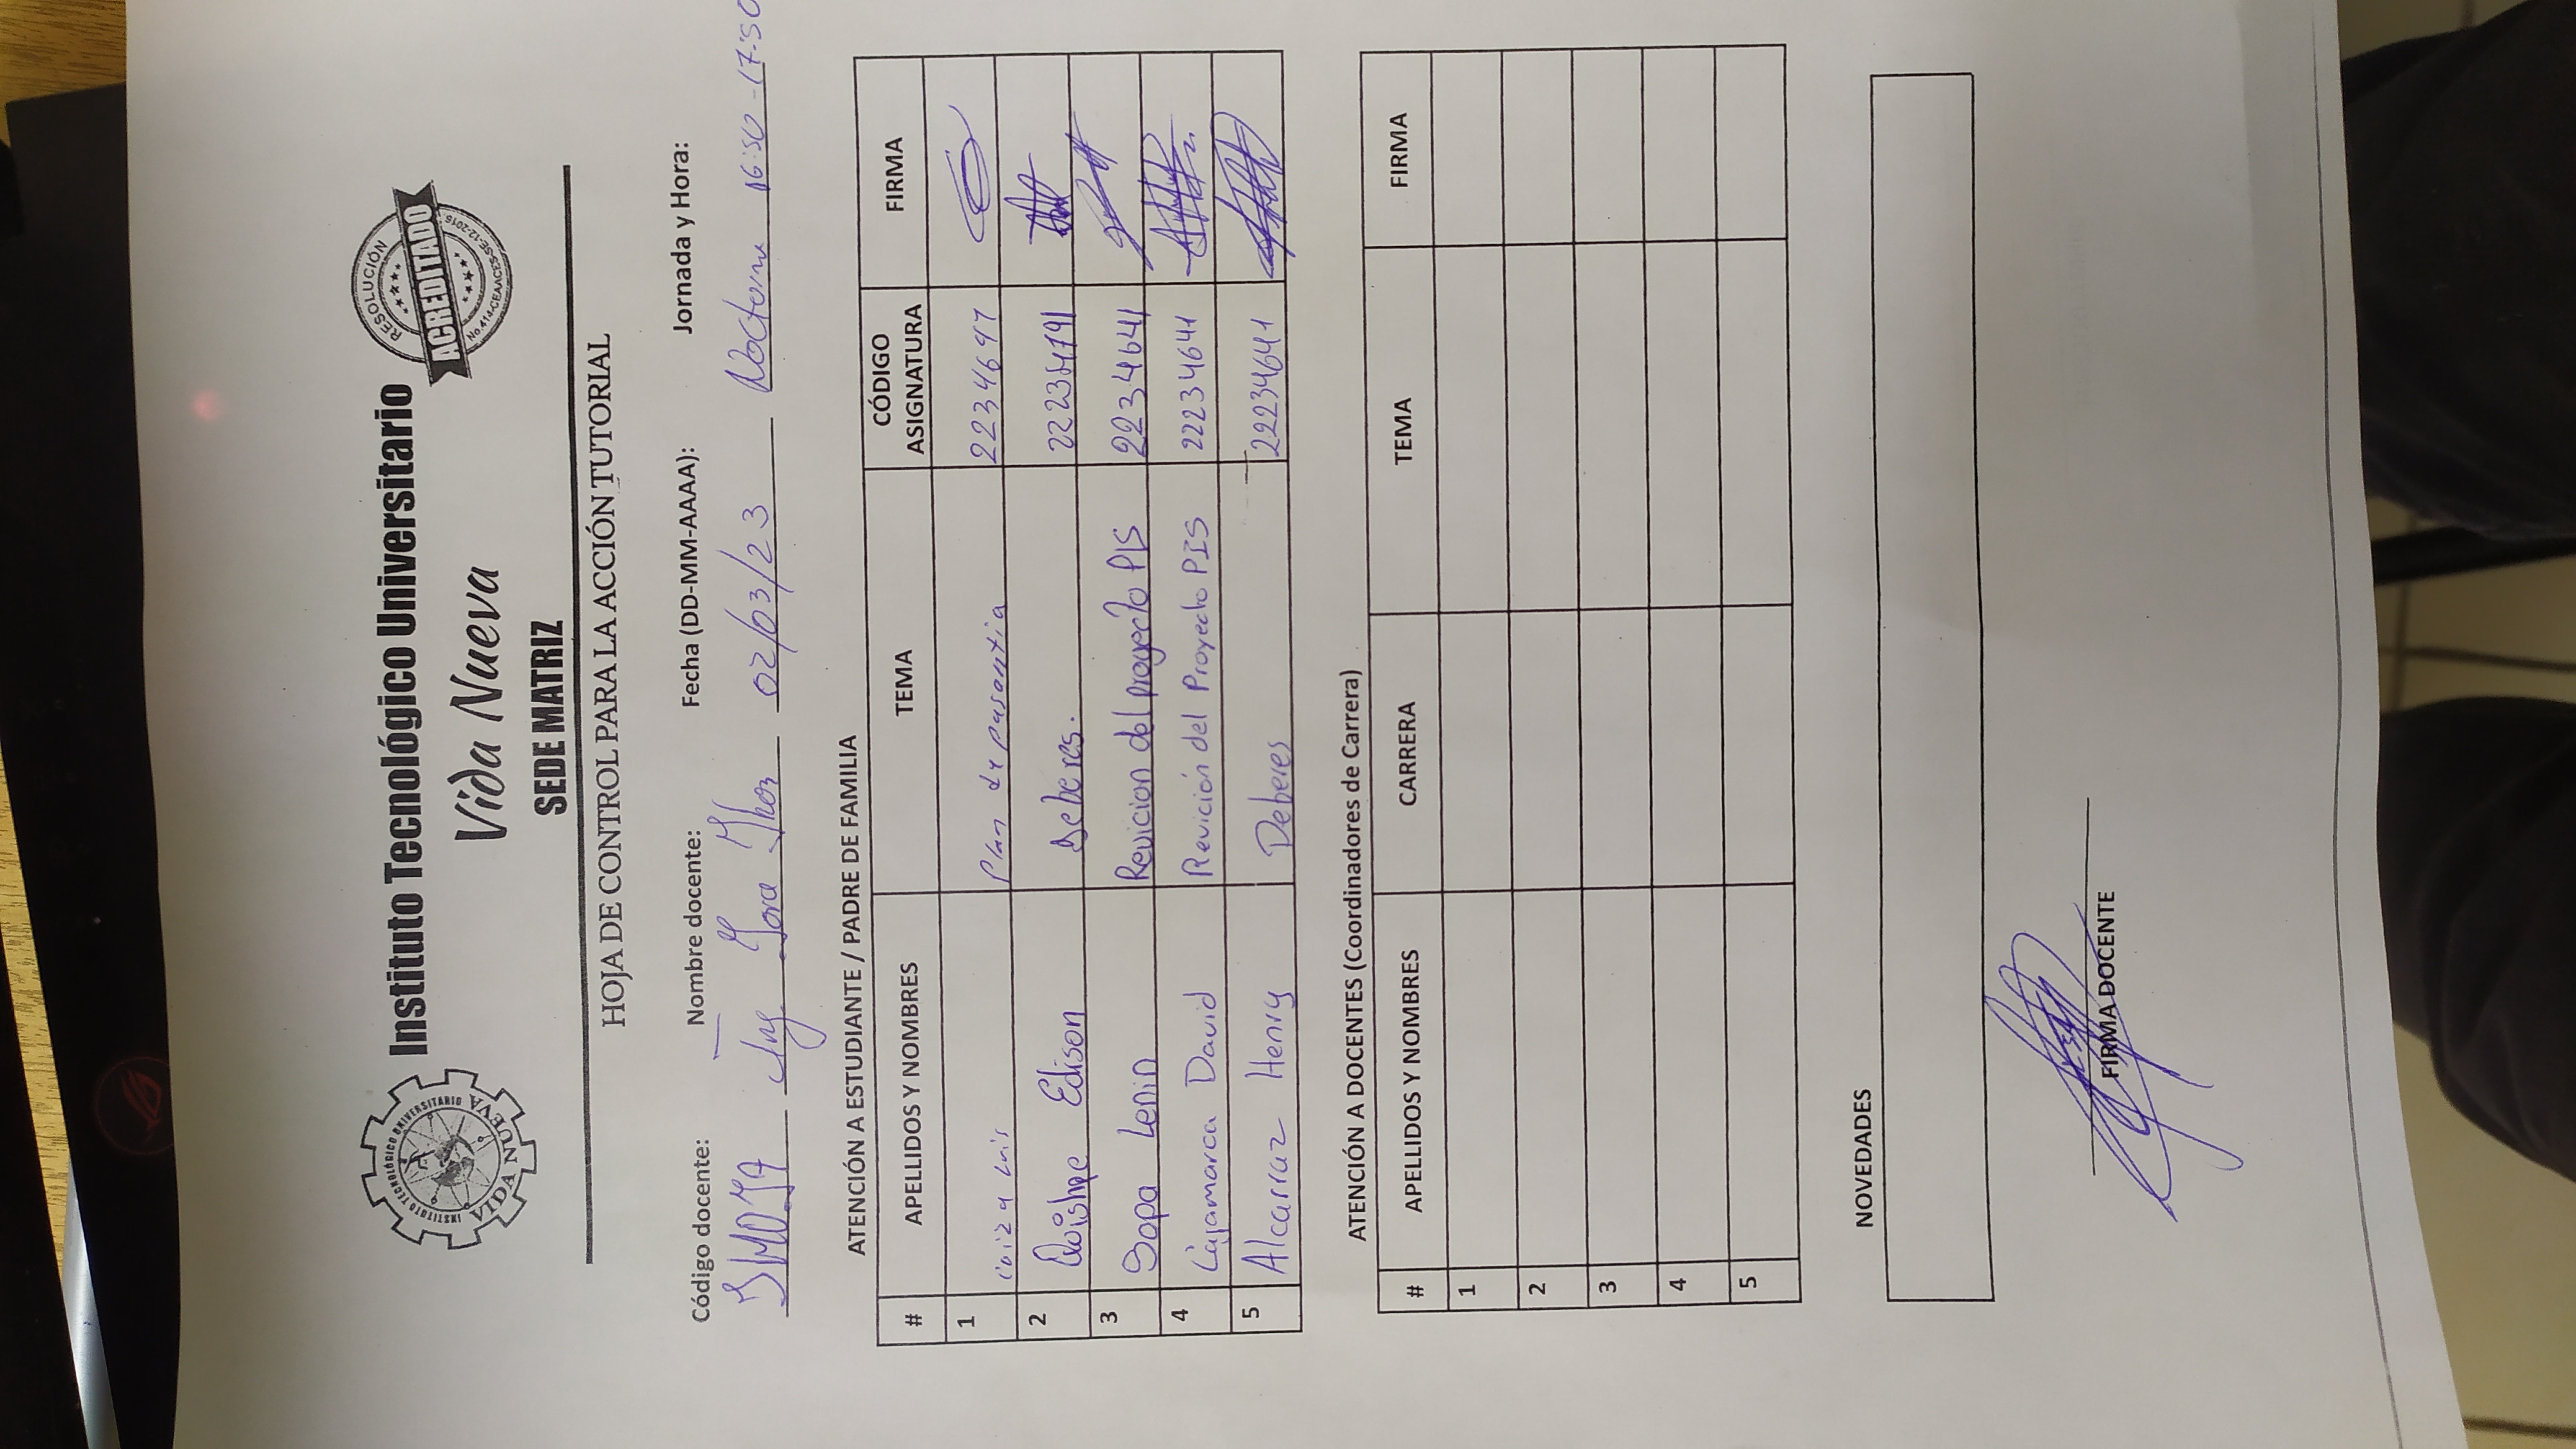 INSTITUTO TECNOLÓGICO UNIVERSITARIO
VIDA NUEVA
Instituto Tecnológico Universitario
Vida Nueva
SEDE MATRIZ
RESOLUCIÓN
ACREDITADO
No.414-CEAACES-SE-12-2016
HOJA DE CONTROL PARA LA ACCIÓN TUTORIAL
Código docente: Nombre docente: Fecha (DD-MM-AAAA): Jornada y Hora:
Ing 02/03/23 16:50 -17:50
ATENCIÓN A ESTUDIANTE / PADRE DE FAMILIA
# APELLIDOS Y NOMBRES TEMA CÓDIGO ASIGNATURA FIRMA
1 Luis Plan de pasantia 2234641
2 Quishpe Edison Deberes.
3 Sopa Lenin Revicion del proyecto PIS 2234641
4 Cajamarca David Revición del Proyecto PIS 22234641
5 Alcarraz Henry Deberes 22234641
ATENCIÓN A DOCENTES (Coordinadores de Carrera)
# APELLIDOS Y NOMBRES CARRERA TEMA FIRMA
1
2
3
4
5
NOVEDADES
FIRMA DOCENTE